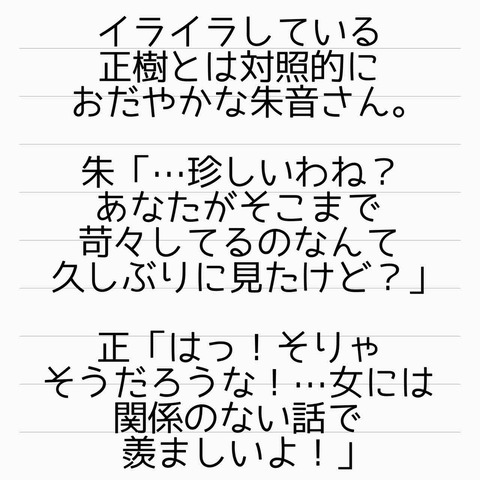 イライラしている
正樹とは対照的に
おだやかな朱音さん。
朱「…珍しいわね？
あなたがそこまで
苛々してるのなんて
久しぶりに見たけど？」
正「はっ！そりゃ
そうだろうな！…女には
関係のない話で
羨ましいよ！」